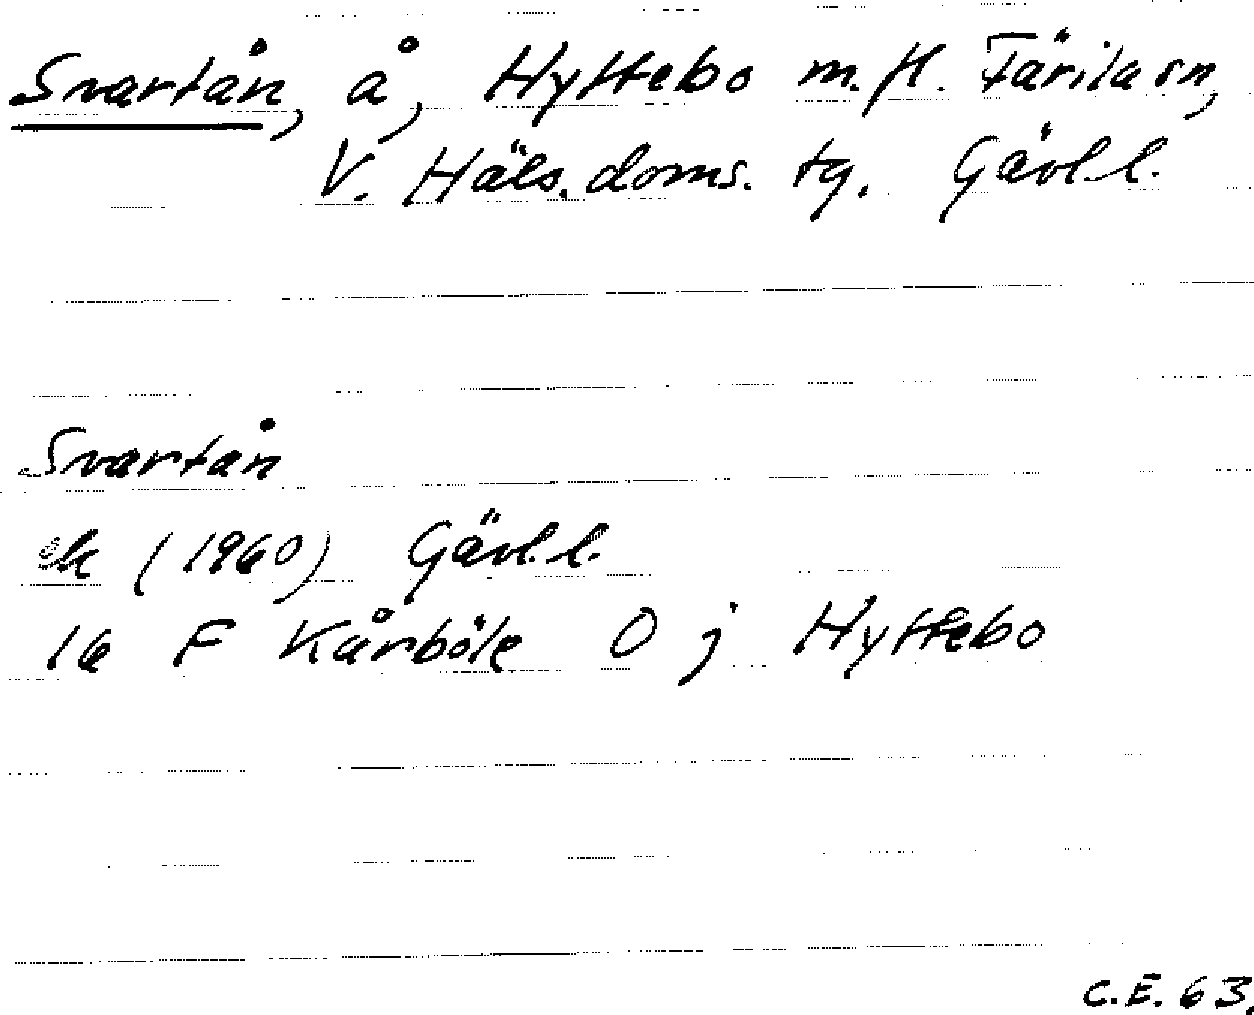 Svartån, å, Hyttebo m.fl. Färila sn,
V. Häls. doms. tg. Gävl.l.
Svartån
ek (1960) Gävl.l.
16 F Kårböle O j Hyttebo
C.E. 63.